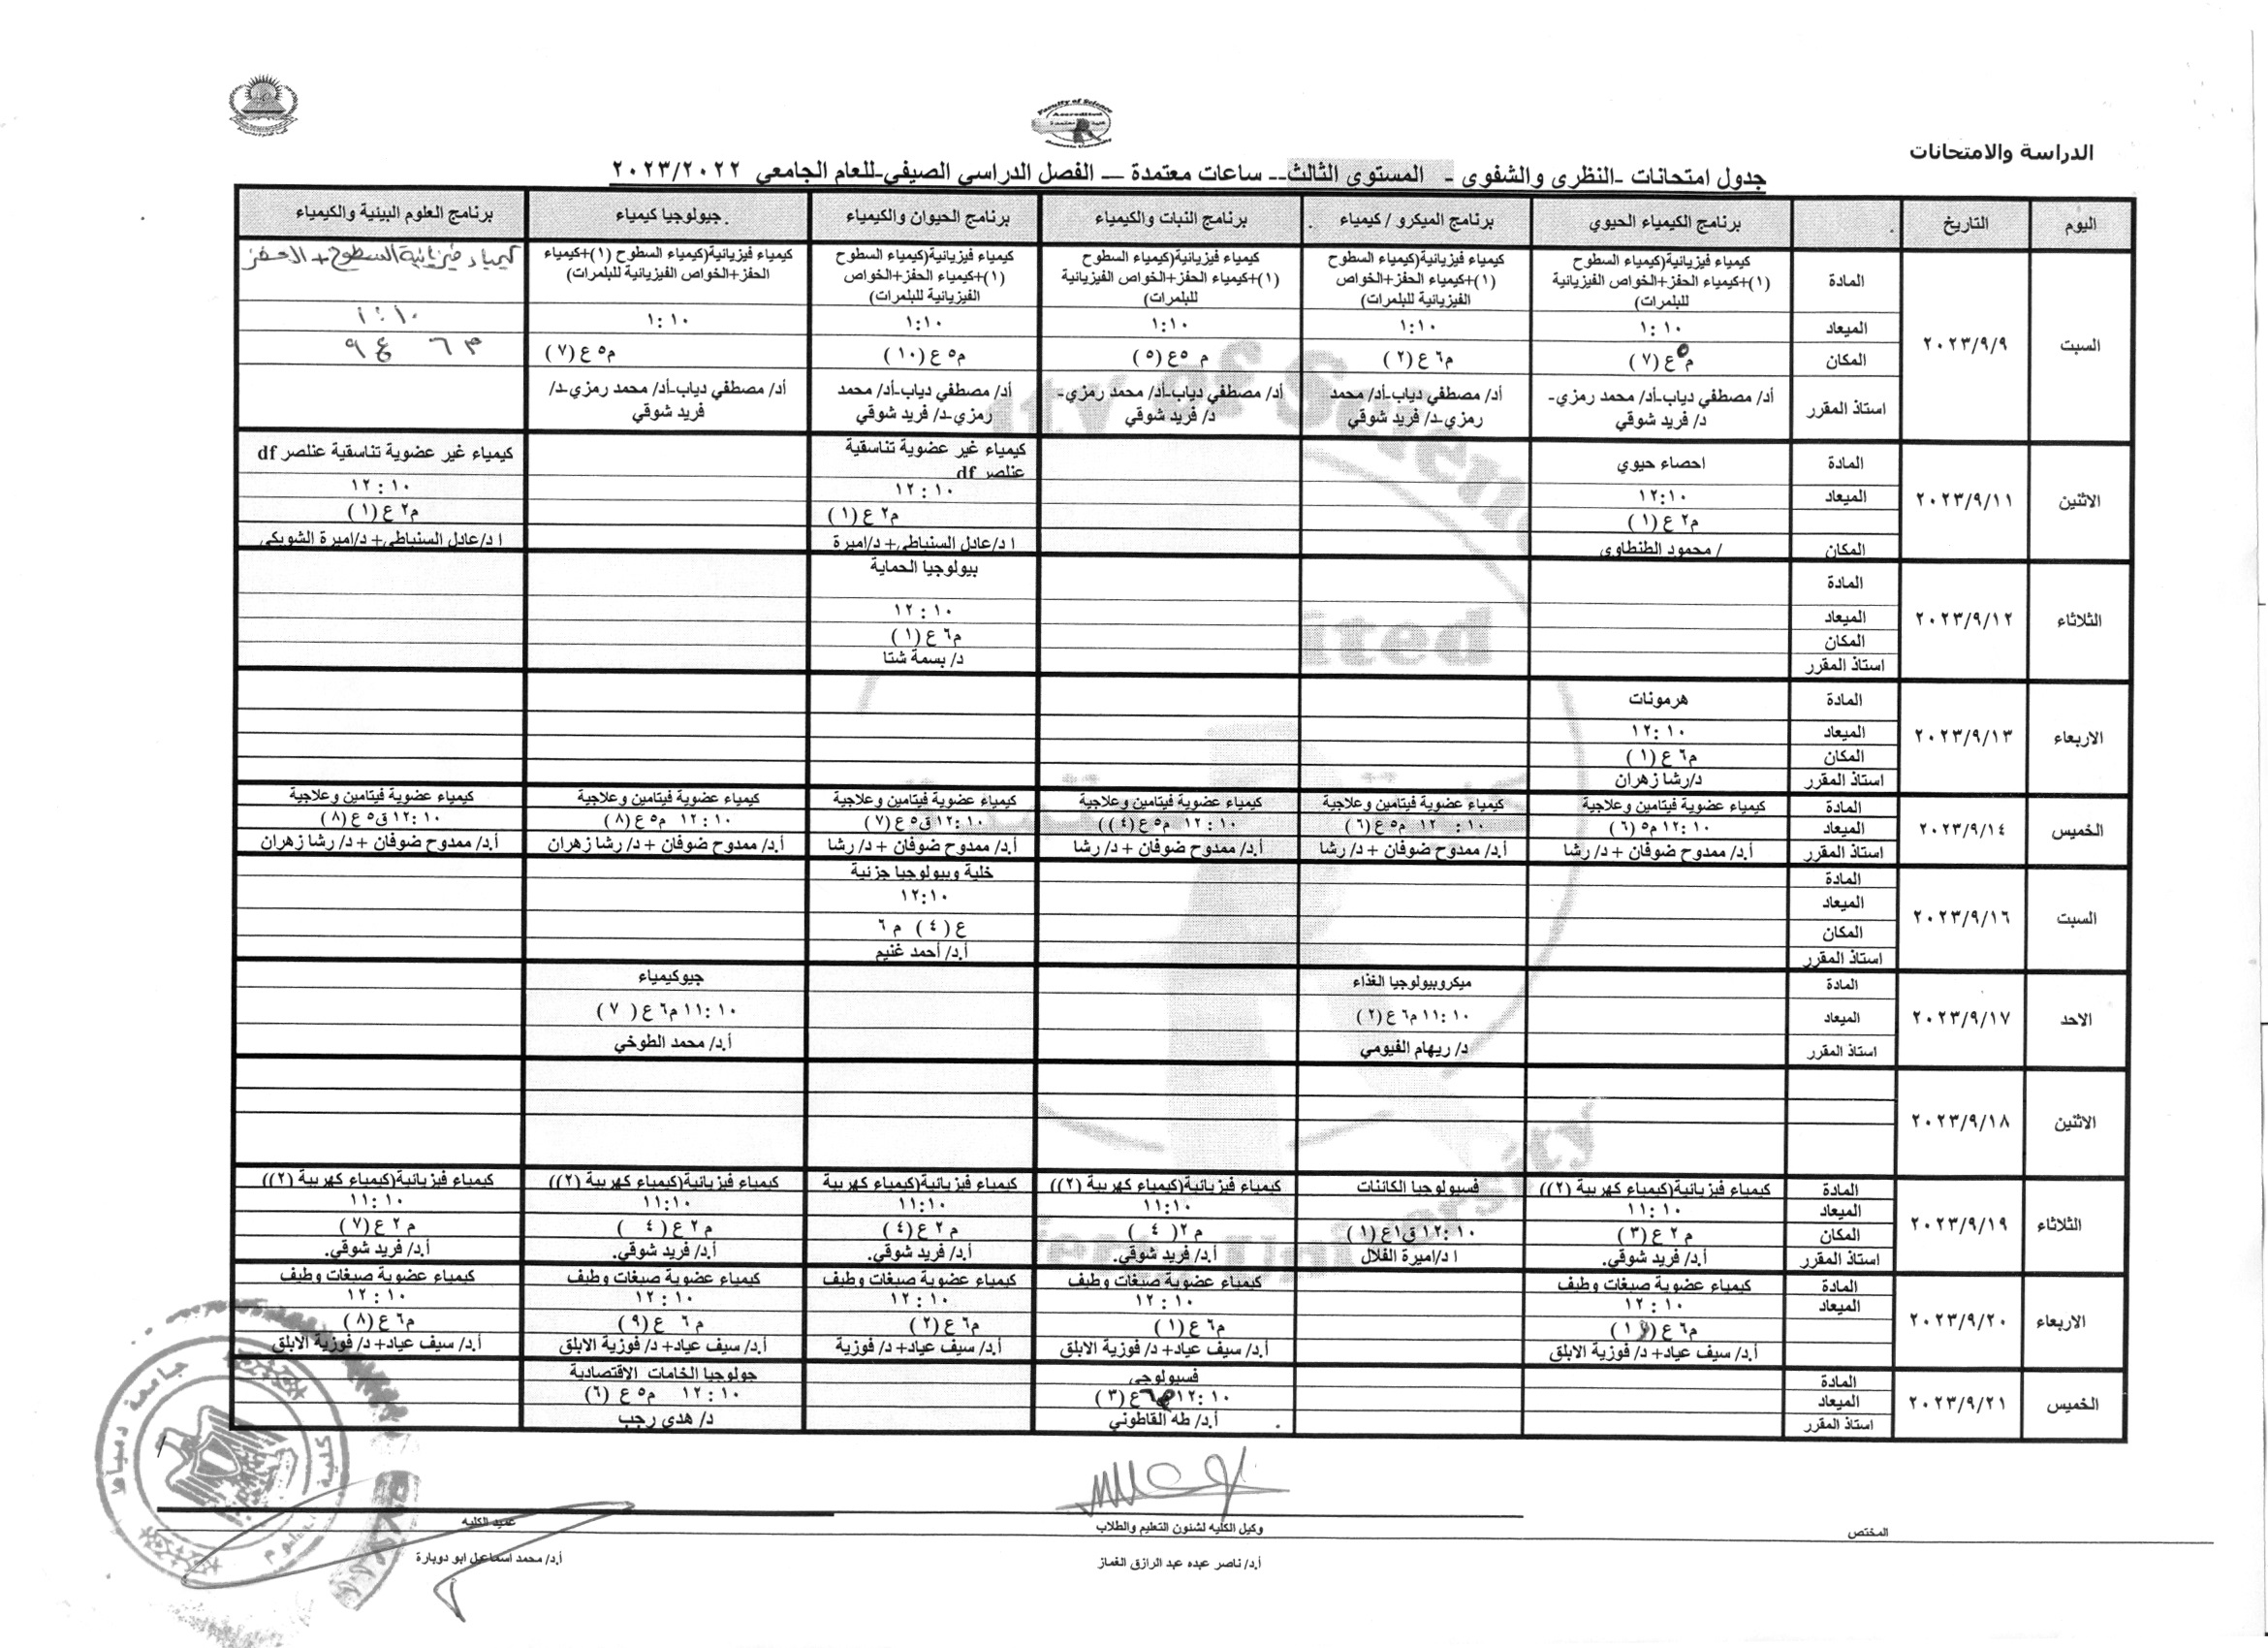 الدراسة والامتحانات
جدول امتحانات -النظرى والشفوى - المستوى الثالث-- ساعات معتمدة — الفصل الدراسي الصيفي-للعام الجامعي ٢٠٢٣/٢٠٢٢
اليوم التاريخ برنامج الكيمياء الحيوي برنامج الميكرو / كيمياء برنامج النبات والكيمياء برنامج الحيوان والكيمياء جيولوجيا كيمياء برنامج العلوم البيئية والكيمياء
السبت ٢٠٢٣/٩/٩
المادة كيمياء فيزيائية(كيمياء السطوح (١)+كيمياء الحفز+الخواص الفيزيائية للبلمرات) كيمياء فيزيائية(كيمياء السطوح (١)+كيمياء الحفز+الخواص الفيزيائية للبلمرات) كيمياء فيزيائية(كيمياء السطوح (١)+كيمياء الحفز+الخواص الفيزيائية للبلمرات) كيمياء فيزيائية(كيمياء السطوح (١)+كيمياء الحفز+الخواص الفيزيائية للبلمرات) كيمياء فيزيائية(كيمياء السطوح (١)+كيمياء الحفز+الخواص الفيزيائية للبلمرات) كيمياء فيزيائية السطوح + الحفز
الميعاد ١:١٠ ١:١٠ ١:١٠ ١:١٠ ١:١٠ ١:١٠
المكان م٥ ع(٧) م٦ ع(٢) م ٥ع (٥) م٥ ع(١٠) م٥ ع(٧) م٦ ع ٩
استاذ المقرر أد/ مصطفي دياب-أد/ محمد رمزي-د/ فريد شوقي أد/ مصطفي دياب-أد/ محمد رمزي-د/ فريد شوقي أد/ مصطفي دياب-أد/ محمد رمزي-د/ فريد شوقي أد/ مصطفي دياب-أد/ محمد رمزي-د/ فريد شوقي أد/ مصطفي دياب-أد/ محمد رمزي-د/ فريد شوقي
الاثنين ٢٠٢٣/٩/١١
المادة احصاء حيوي كيمياء غير عضوية تناسقية عناصر df كيمياء غير عضوية تناسقية عناصر df
الميعاد ١٢:١٠ ١٢:١٠ ١٢:١٠
م٢ ع(١) م٢ ع(١) م٢ ع(١)
المكان / محمود الطنطاوى ا د/عادل السنباطى+ د/اميرة ا د/عادل السنباطى+ د/اميرة الشويكى
الثلاثاء ٢٠٢٣/٩/١٢
المادة بيولوجيا الحماية
الميعاد ١٢:١٠
المكان م٦ ع(١)
استاذ المقرر د/ بسمة شتا
الاربعاء ٢٠٢٣/٩/١٣
المادة هرمونات
الميعاد ١٢:١٠
المكان م٦ ع(١)
استاذ المقرر د/رشا زهران
الخميس ٢٠٢٣/٩/١٤
المادة كيمياء عضوية فيتامين وعلاجية كيمياء عضوية فيتامين وعلاجية كيمياء عضوية فيتامين وعلاجية كيمياء عضوية فيتامين وعلاجية كيمياء عضوية فيتامين وعلاجية كيمياء عضوية فيتامين وعلاجية
الميعاد ١٢:١٠ م٥ (٦) ١٢:١٠ م٥ ع(٦) ١٢:١٠ م٥ ع(٤)) ١٢:١٠ ق٥ ع(٧) ١٢:١٠ م٥ ع(٨) ١٢:١٠ ق٥ ع(٨)
استاذ المقرر أ.د/ ممدوح ضوفان + د/ رشا أ.د/ ممدوح ضوفان + د/ رشا أ.د/ ممدوح ضوفان + د/ رشا أ.د/ ممدوح ضوفان + د/ رشا أ.د/ ممدوح ضوفان + د/ رشا زهران أ.د/ ممدوح ضوفان + د/ رشا زهران
السبت ٢٠٢٣/٩/١٦
المادة خلية وبيولوجيا جزئية
الميعاد ١٢:١٠
المكان ع(٤) م ٦
استاذ المقرر أ.د/ أحمد غنيم
الاحد ٢٠٢٣/٩/١٧
المادة ميكروبيولوجيا الغذاء جيوكيمياء
الميعاد ١١:١٠ م٦ ع(٢) ١١:١٠ م٦ ع( ٧)
استاذ المقرر د/ ريهام الفيومي أ.د/ محمد الطوخي
الاثنين ٢٠٢٣/٩/١٨
الثلاثاء ٢٠٢٣/٩/١٩
المادة كيمياء فيزيائية(كيمياء كهربية (٢)) فسيولوجيا الكائنات كيمياء فيزيائية(كيمياء كهربية (٢)) كيمياء فيزيائية(كيمياء كهربية كيمياء فيزيائية(كيمياء كهربية (٢)) كيمياء فيزيائية(كيمياء كهربية (٢))
الميعاد ١١:١٠ ١١:١٠ ١١:١٠ ١١:١٠ ١١:١٠
المكان م ٢ ع(٣) ١٢:١٠ ق١ع (١) م ٢( ٤ ) م ٢ ع(٤) م ٢ ع( ٤ ) م ٢ ع(٧)
استاذ المقرر أ.د/ فريد شوقي. ا د/اميرة الفلال أ.د/ فريد شوقي. أ.د/ فريد شوقي. أ.د/ فريد شوقي. أ.د/ فريد شوقي.
الاربعاء ٢٠٢٣/٩/٢٠
المادة كيمياء عضوية صبغات وطيف كيمياء عضوية صبغات وطيف كيمياء عضوية صبغات وطيف كيمياء عضوية صبغات وطيف كيمياء عضوية صبغات وطيف
الميعاد ١٢:١٠ ١٢:١٠ ١٢:١٠ ١٢:١٠ ١٢:١٠
م٦ ع(١) م٦ ع(١) م٦ ع(٢) م٦ ع(٩) م٦ ع(٨)
أ.د/ سيف عياد+ د/ فوزية الابلق أ.د/ سيف عياد+ د/ فوزية الابلق أ.د/ سيف عياد+ د/ فوزية أ.د/ سيف عياد+ د/ فوزية الابلق أ.د/ سيف عياد+ د/ فوزية الابلق
الخميس ٢٠٢٣/٩/٢١
المادة فسيولوجى جولوجيا الخامات الاقتصادية
الميعاد ١٢:١٠ ع(٣) ١٢:١٠ م٥ ع (٦)
استاذ المقرر أ.د/ طه القاطوني د/ هدى رجب
المختص وكيل الكليه لشئون التعليم والطلاب عميد الكليه
أ.د/ ناصر عبده عبد الرازق الغماز أ.د/ محمد اسماعيل ابو دوبارة
جامعة دمياط
كلية العلوم